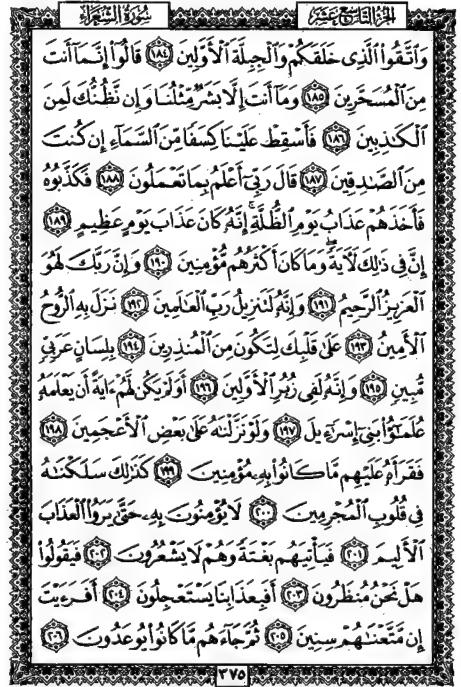 الجزء التاسع عشر
سورة الشعراء
وَاتَّقُوا الَّذِي خَلَقَكُمْ وَالْجِبِلَّةَ الْأَوَّلِينَ ١٨٤ قَالُوا إِنَّمَا أَنتَ
مِنَ الْمُسَحَّرِينَ ١٨٥ وَمَا أَنتَ إِلَّا بَشَرٌ مِّثْلُنَا وَإِن نَّظُنُّكَ لَمِنَ
الْكَٰذِبِينَ ١٨٦ فَأَسْقِطْ عَلَيْنَا كِسَفًا مِّنَ السَّمَاءِ إِن كُنتَ
مِنَ الصَّٰدِقِينَ ١٨٧ قَالَ رَبِّي أَعْلَمُ بِمَا تَعْمَلُونَ ١٨٨ فَكَذَّبُوهُ
فَأَخَذَهُمْ عَذَابُ يَوْمِ الظُّلَّةِ ۚ إِنَّهُ كَانَ عَذَابَ يَوْمٍ عَظِيمٍ ١٨٩
إِنَّ فِي ذَٰلِكَ لَآيَةً ۖ وَمَا كَانَ أَكْثَرُهُم مُّؤْمِنِينَ ١٩٠ وَإِنَّ رَبَّكَ لَهُوَ
الْعَزِيزُ الرَّحِيمُ ١٩١ وَإِنَّهُ لَتَنزِيلُ رَبِّ الْعَٰلَمِينَ ١٩٢ نَزَلَ بِهِ الرُّوحُ
الْأَمِينُ ١٩٣ عَلَىٰ قَلْبِكَ لِتَكُونَ مِنَ الْمُنذِرِينَ ١٩٤ بِلِسَانٍ عَرَبِيٍّ
مُّبِينٍ ١٩٥ وَإِنَّهُ لَفِي زُبُرِ الْأَوَّلِينَ ١٩٦ أَوَلَمْ يَكُن لَّهُمْ ءَايَةً أَن يَعْلَمَهُ
عُلَمَٰٓؤُا بَنِي إِسْرَٰٓءِيلَ ١٩٧ وَلَوْ نَزَّلْنَٰهُ عَلَىٰ بَعْضِ الْأَعْجَمِينَ ١٩٨
فَقَرَأَهُ عَلَيْهِم مَّا كَانُوا بِهِ مُؤْمِنِينَ ١٩٩ كَذَٰلِكَ سَلَكْنَٰهُ
فِي قُلُوبِ الْمُجْرِمِينَ ٢٠٠ لَا يُؤْمِنُونَ بِهِ حَتَّىٰ يَرَوُا الْعَذَابَ
الْأَلِيمَ ٢٠١ فَيَأْتِيَهُم بَغْتَةً وَهُمْ لَا يَشْعُرُونَ ٢٠٢ فَيَقُولُوا
هَلْ نَحْنُ مُنظَرُونَ ٢٠٣ أَفَبِعَذَابِنَا يَسْتَعْجِلُونَ ٢٠٤ أَفَرَءَيْتَ
إِن مَّتَّعْنَٰهُمْ سِنِينَ ٢٠٥ ثُمَّ جَاءَهُم مَّا كَانُوا يُوعَدُونَ ٢٠٦
٣٧٥